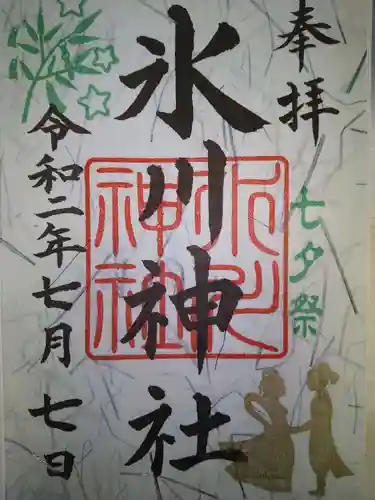 奉拝
七夕祭
氷川神社
氷川神社
令和二年七月七日